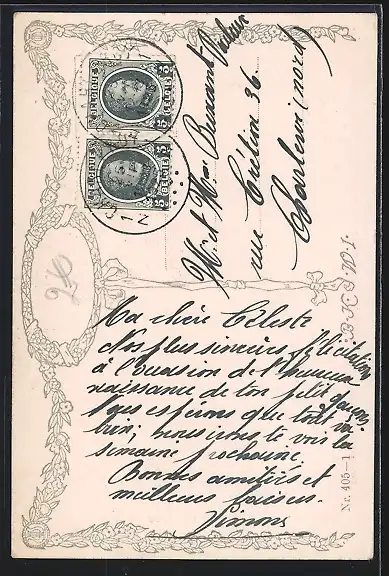 BELGIQUE 5c 5c BELGIË
BELGIQUE 5c 5c BELGIË
Mr et Mme Bussant-Dufour
rue Crétin 36
Charleroi (nord)
26
Ma chère Céleste
Nos plus sincères félicitations
à l'occasion de l'heureuse
naissance de ton petit garçon.
Nous espérons que tout va
bien; nous irons te voir la
semaine prochaine.
Bonnes amitiés et
meilleurs baisers.
Simons
B.K.W.I.
Nr. 405-1